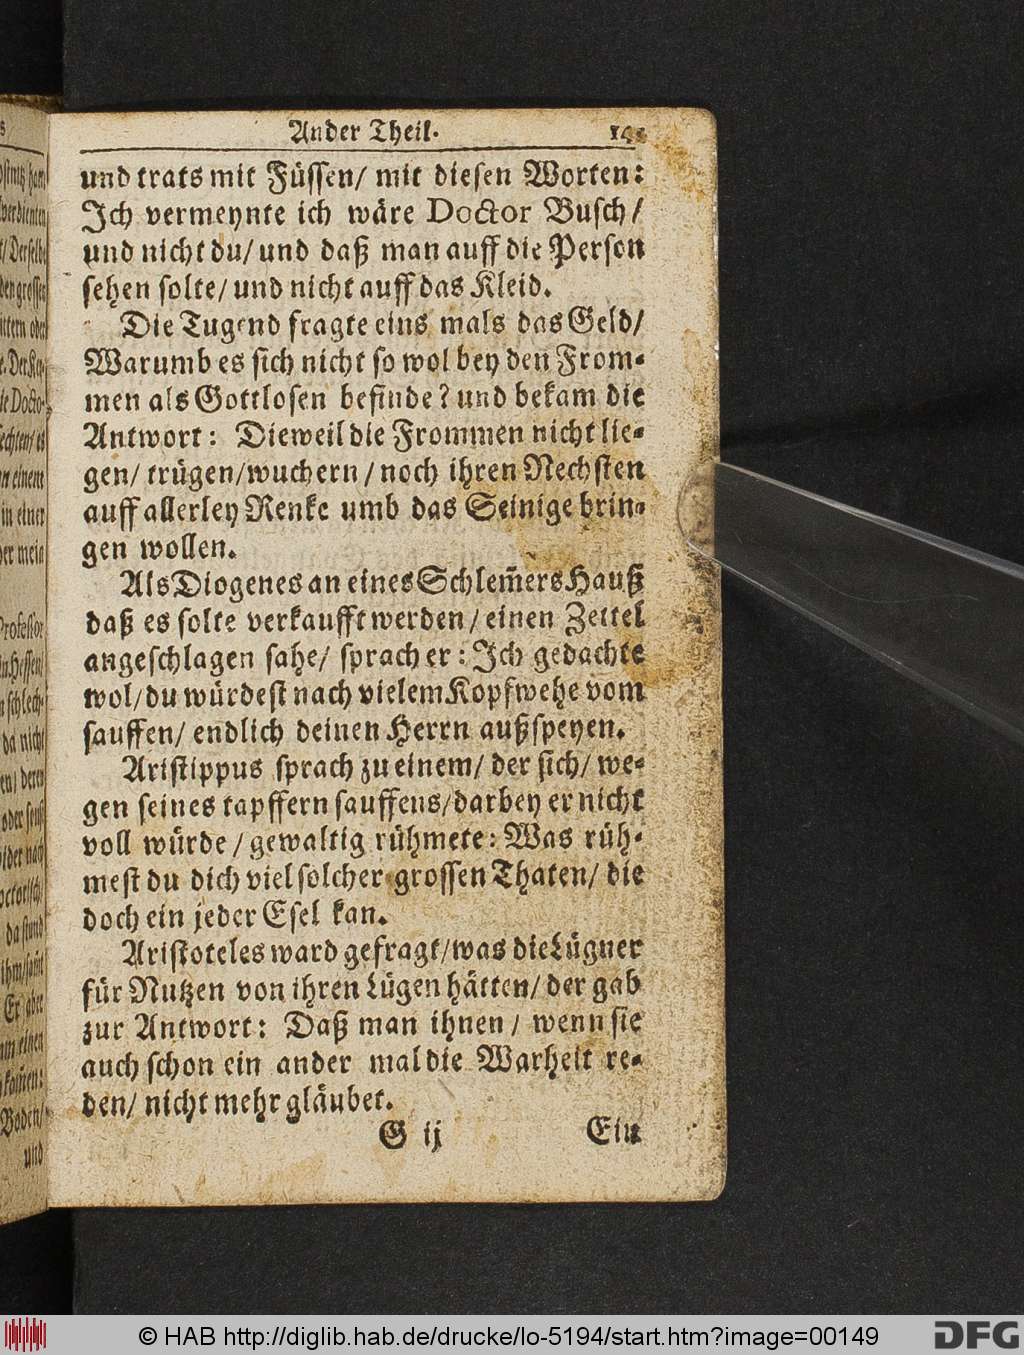 Ander Theil.
und trats mit Füssen/ mit diesen Worten:
Ich vermeynte ich wäre Doctor Busch/
und nicht du/ und daß man auff die Person
sehen solte/ und nicht auff das Kleid.
Die Tugend fragte eins mals das Geld/
Warumb es sich nicht so wol bey den From-
men als Gottlosen befinde? und bekam die
Antwort: Dieweil die Frommen nicht lie-
gen/ trügen/ wuchern/ noch ihren Nechsten
auff allerley Renke umb das Seinige brin-
gen wollen.
Als Diogenes an eines Schlem̃ers Hauß
daß es solte verkaufft werden/ einen Zettel
angeschlagen sahe/ sprach er: Ich gedachte
wol/ du würdest nach vielem Kopfwehe vom
sauffen/ endlich deinen Herrn außspeyen.
Aristippus sprach zu einem/ der sich/ we-
gen seines tapffern sauffens/ darbey er nicht
voll würde/ gewaltig rühmete: Was rüh-
mest du dich viel solcher grossen Thaten/ die
doch ein jeder Esel kan.
Aristoteles ward gefragt/ was die Lügner
für Nutzen von ihren Lügen hätten/ der gab
zur Antwort: Daß man ihnen/ wenn sie
auch schon ein ander mal die Warheit re-
den/ nicht mehr gläubet.
G ij Ein
© HAB http://diglib.hab.de/drucke/lo-5194/start.htm?image=00149
DFG